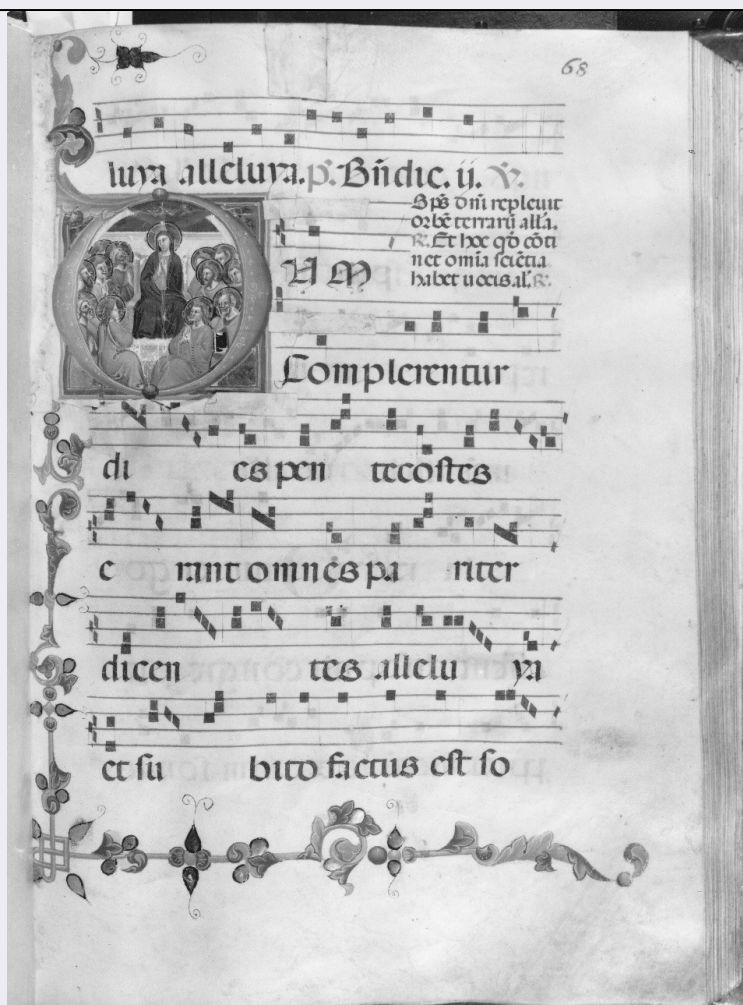 68
luya alleluya. p̄. Bn̄dic. ii. ℣.
Sp̄s dn̄i repleuit
orbē terrarū all'a.
℟. Et hoc qd̄ cōti
net omīa sciētia
habet uocis al'. ℟.
UM
Complerentur
di es pen tecostes
e rant omnes pa riter
dicen tes allelu ya
et su bito factus est so